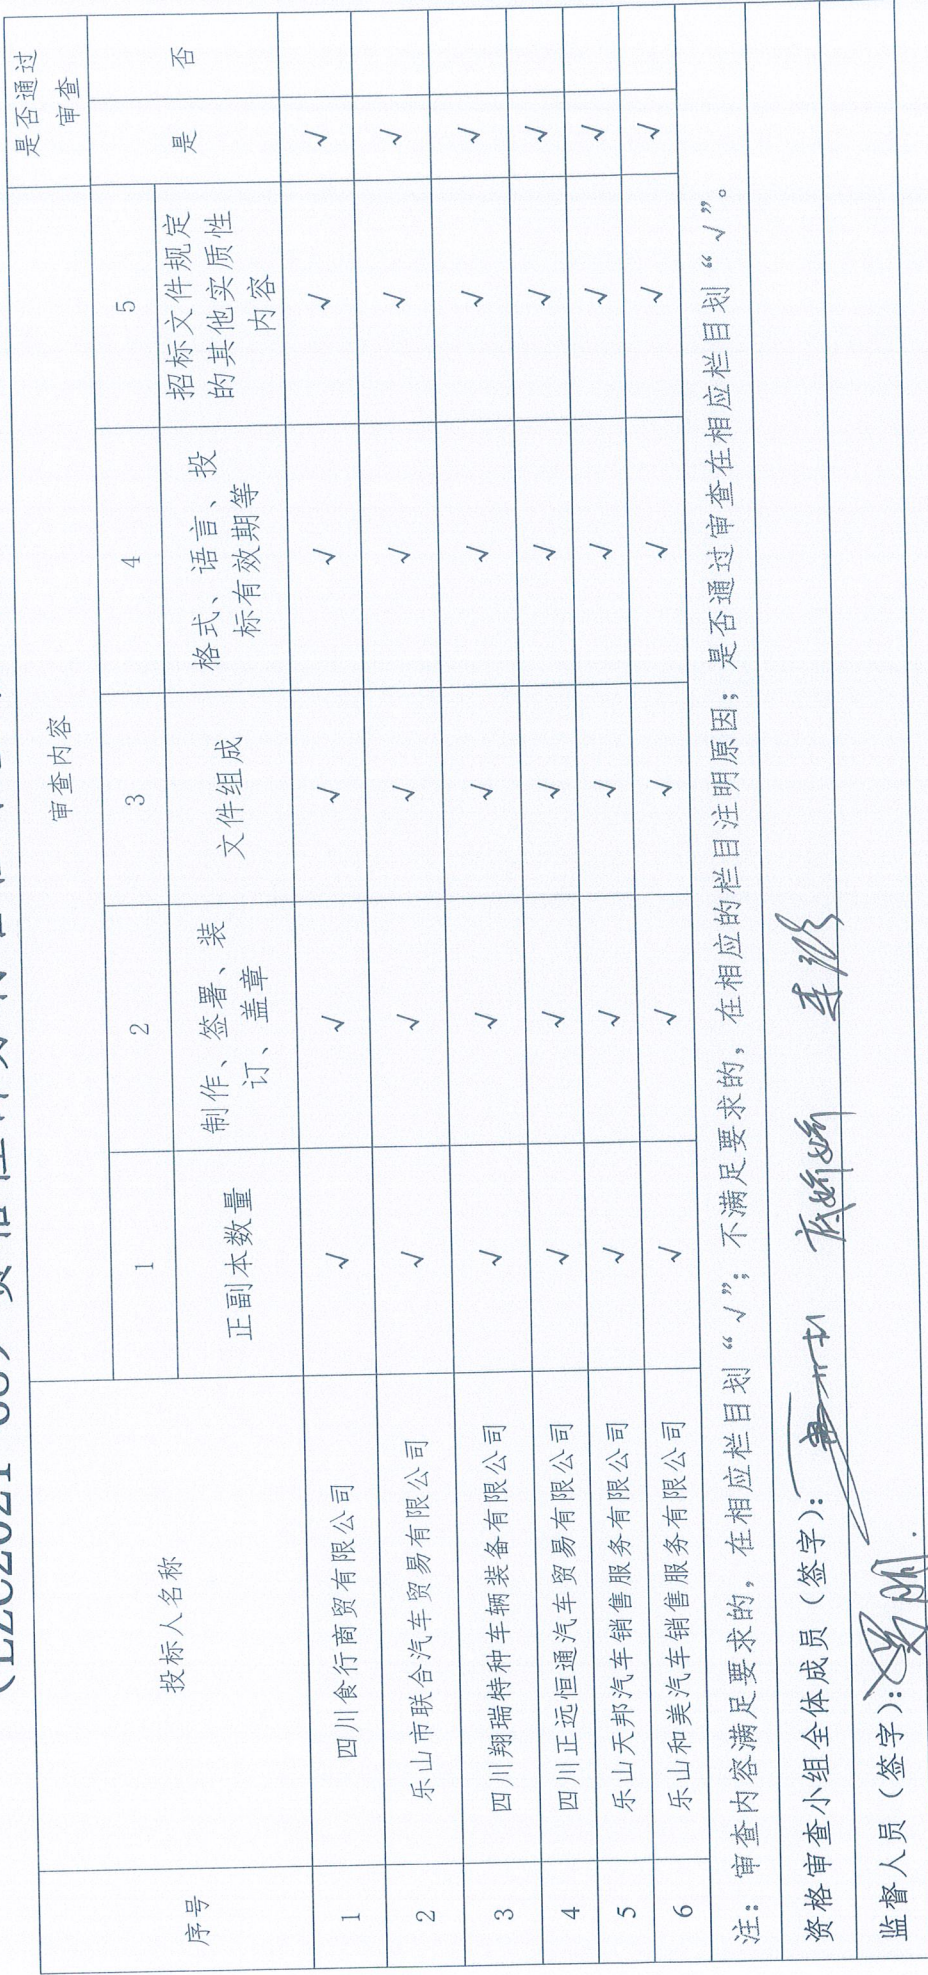 序号 投标人名称 审查内容 是否通过审查
1 2 3 4 5 是 否
正副本数量 制作、签署、装订、盖章 文件组成 格式、语言、投标有效期等 招标文件规定的其他实质性内容
1 四川食行商贸有限公司 √ √ √ √ √ √
2 乐山市联合汽车贸易有限公司 √ √ √ √ √ √
3 四川翔瑞特种车辆装备有限公司 √ √ √ √ √ √
4 四川正远恒通汽车贸易有限公司 √ √ √ √ √ √
5 乐山天邦汽车销售服务有限公司 √ √ √ √ √ √
6 乐山和美汽车销售服务有限公司 √ √ √ √ √ √
注：审查内容满足要求的，在相应栏目划“√”；不满足要求的，在相应的栏目注明原因；是否通过审查在相应栏目划“√”。
资格审查小组全体成员（签字）：
监督人员（签字）：